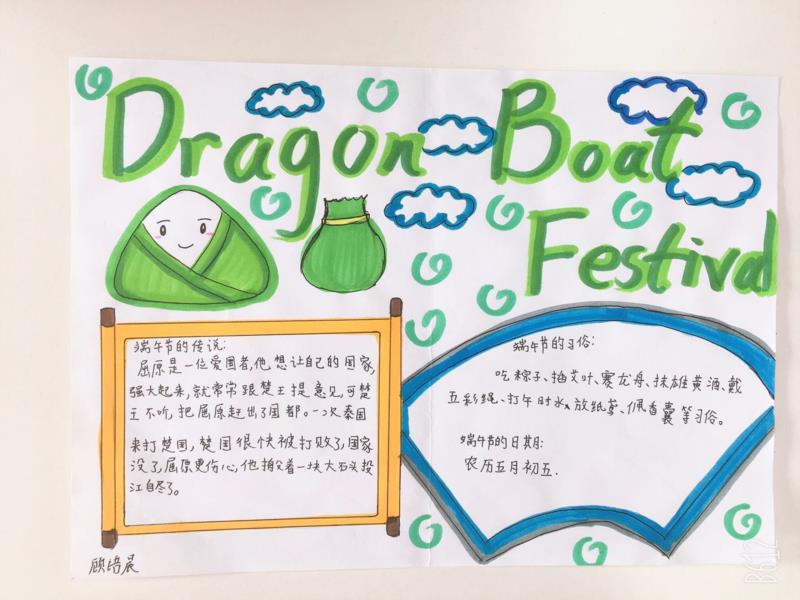 Dragon Boat
Festival
端午节的传说:
屈原是一位爱国者,他想让自己的国家
强大起来,就常常跟楚王提意见,可楚
王不听,把屈原赶出了国都。一次秦国
来打楚国,楚国很快被打败了,国家
没了,屈原更伤心,他抱着一块大石头投
江自尽了。
端午节的习俗:
吃粽子、插艾叶、赛龙舟、抹雄黄酒、戴
五彩绳、打午时水、放纸鸢、佩香囊等习俗。
端午节的日期:
农历五月初五.
顾培晨
B612